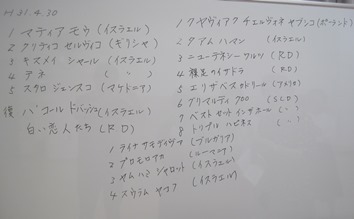 H31.4.30
1 マティア モウ (イスラエル)
2 クリティコ セルヴィコ (ギリシャ)
3 キスメイ シャール (イスラエル)
4 テネ ( 〃 )
5 スタロ ジェンスコ (マケドニア)
復 バコール ドバッシュ (イスラエル)
白い恋人たち (RD)
1 クヤヴィアク チェルヴォネ ヤプシコ (ポーランド)
2 タアム ハマン (イスラエル)
3 ニューテネシーワルツ (RD)
4 裸足のイサドラ (RD)
5 エリザベスカドリール (アメリカ)
6 グリマルディ 700 (SCD)
7 ベスト セット イン ザ ホール ( 〃 )
8 トリプル ハピネス ( 〃 )
1 ライナ (ブルガリア)
2 プロモロアカ (ルーマニア)
3 ヤム ハミ シャロット (イスラエル)
4 (イスラエル)